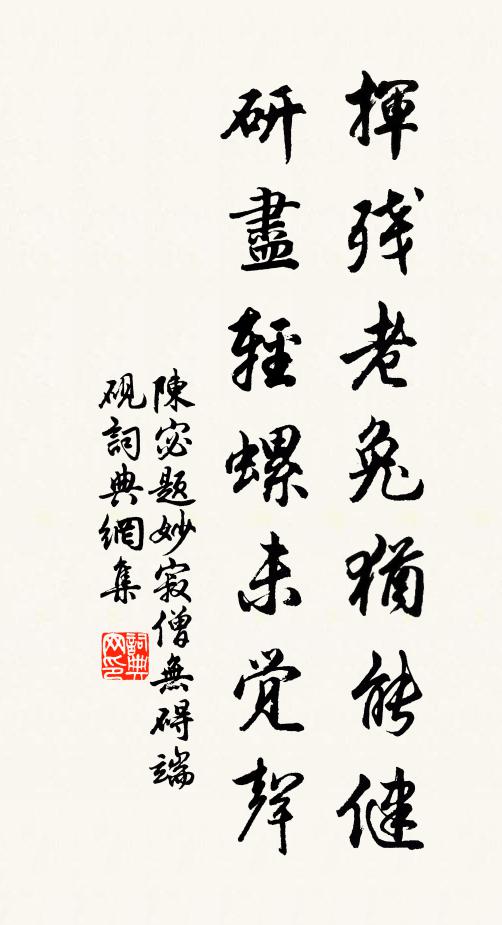 揮残老兔猶能健
研盡輕螺未覚聲
陳宓題妙寂僧無碍端
硯詞典網集
詞典网印